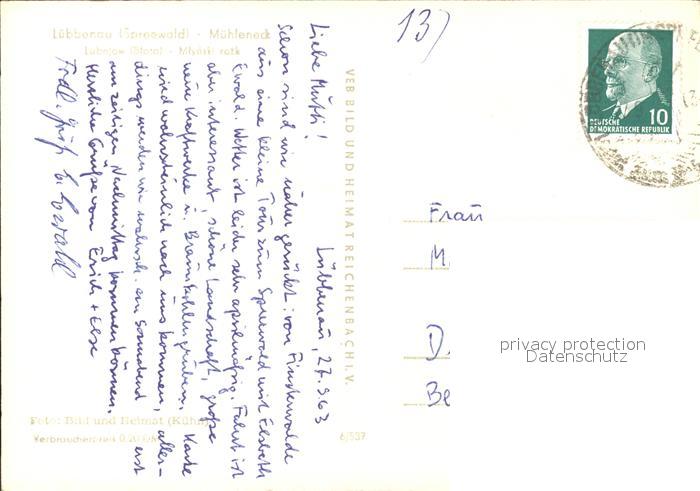 Lübbenau (Spreewald) - Mühleneck
Lubnjow (Błota) - Młyński rožk
137
Lübbenau, 27.9.63
Liebe Mutti!
Schon sind wir näher gerückt: von Finsterwalde
aus eine kleine Tour zum Spreewald mit Elsbeth
Ewald. Wetter ist leider sehr aprilmäßig. Fahrt ist
aber interessant, schöne Landschaft, große
neue Kraftwerke u. Braunkohlengruben. Karte
wird wahrscheinlich nach uns kommen, aller-
dings werden wir wahrsch. am Sonnabend erst
am zeitigen Nachmittag kommen können.
Herzliche Grüße von Erich + Else
Frdl. Grüß E. Ewald
VEB BILD UND HEIMAT REICHENBACH I. V.
10
DEUTSCHE
DEMOKRATISCHE REPUBLIK
Frau
M.
D.
Be
privacy protection
Datenschutz
Foto: Bild und Heimat (Kühn)
Verbraucherpreis 0,20 DM
6/537